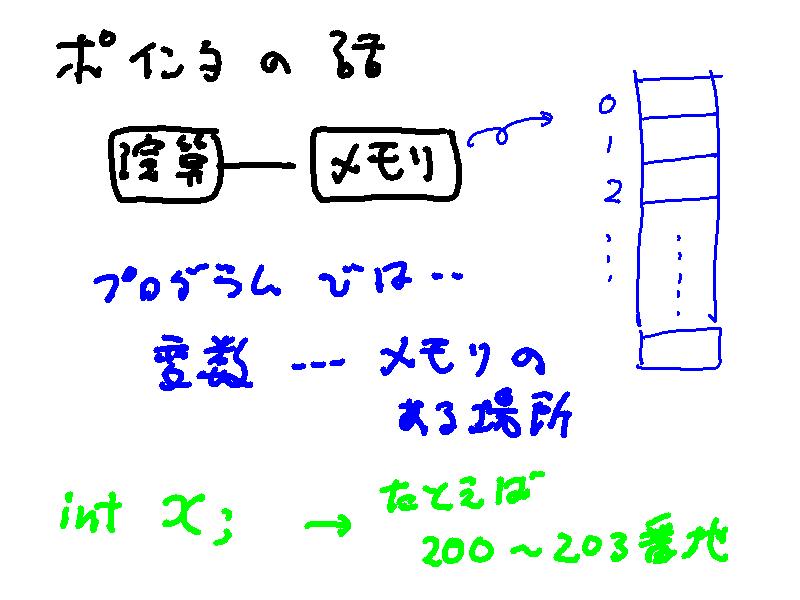 ポインタの話
演算 メモリ
0
1
2
プログラムでは‥
変数 --- メモリの
ある場所
int x; → たとえば
200～203番地